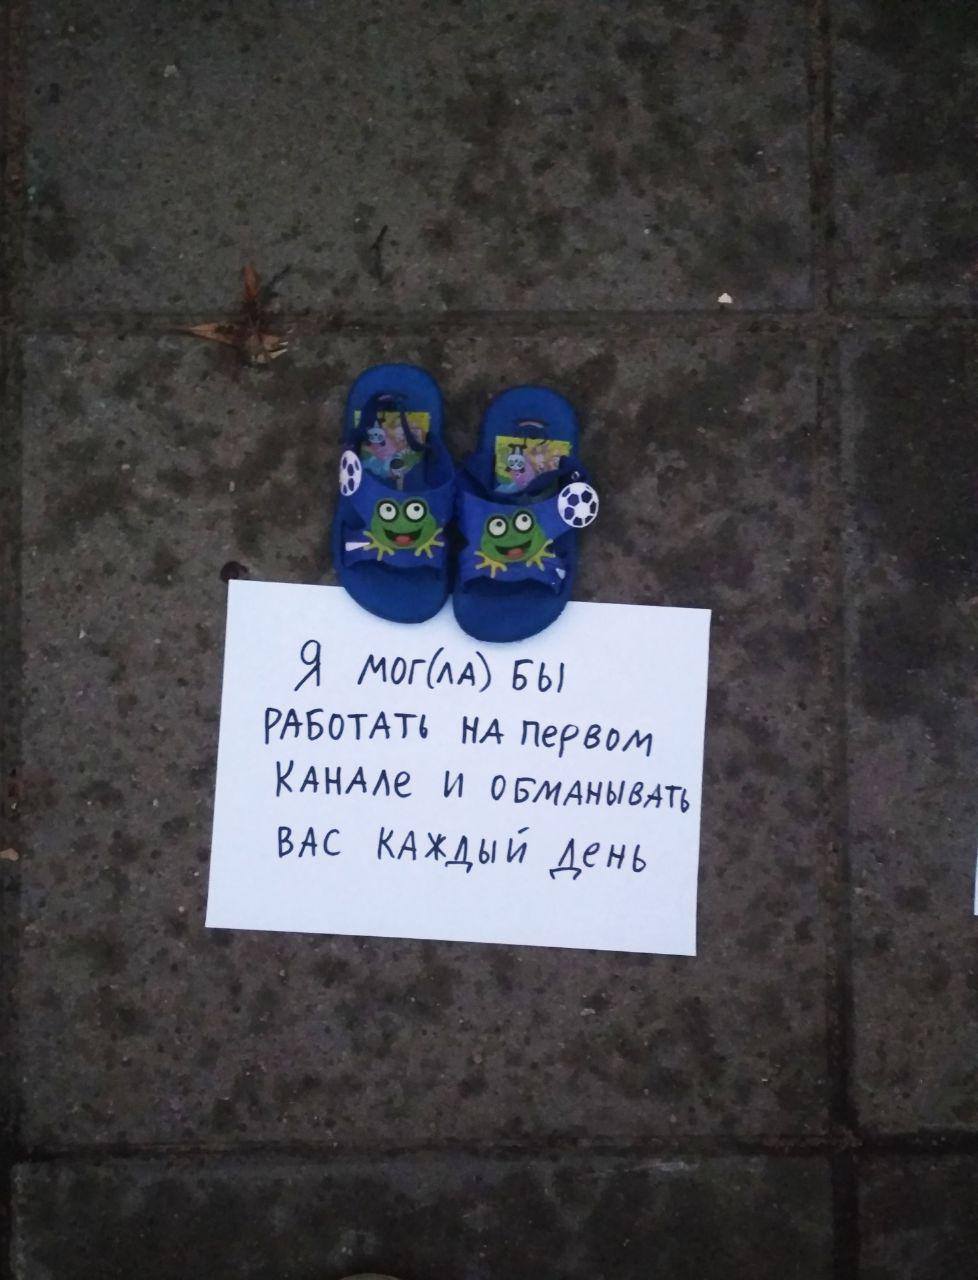 Я МОГ(ЛА) БЫ
РАБОТАТЬ НА ПЕРВОМ
КАНАЛЕ И ОБМАНЫВАТЬ
ВАС КАЖДЫЙ ДЕНЬ